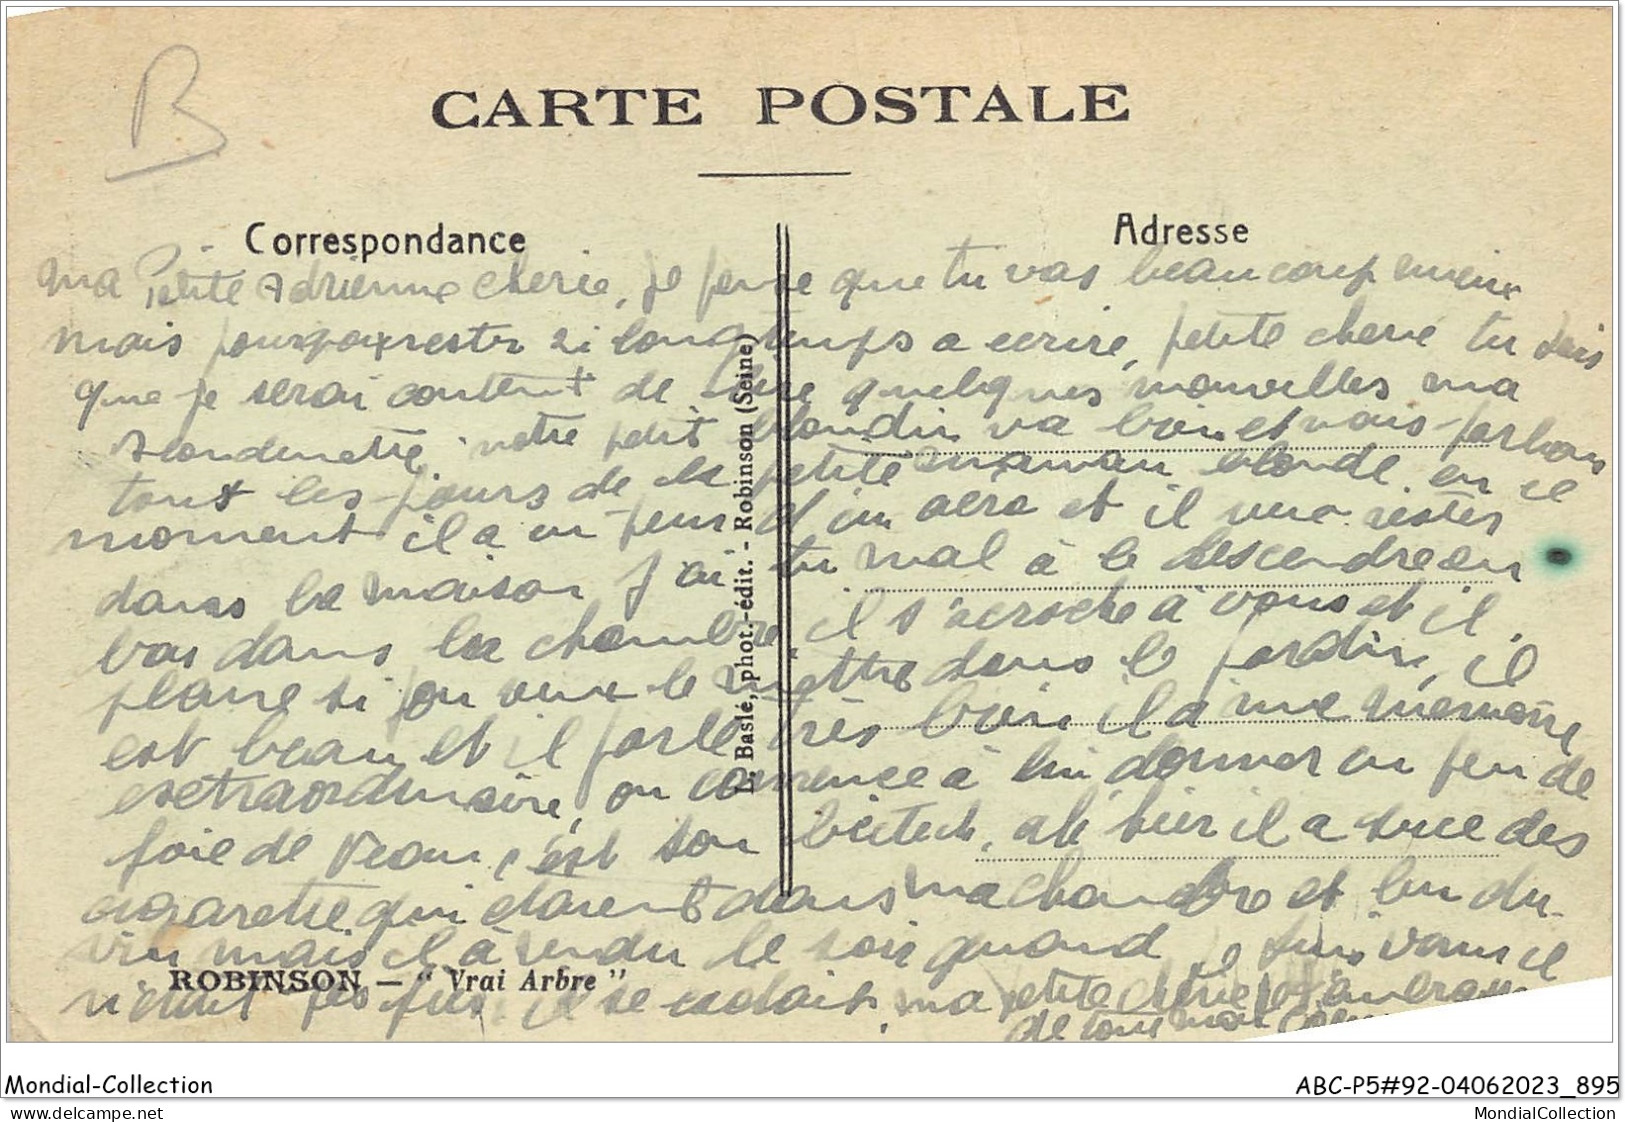 B
CARTE POSTALE
Correspondance
Adresse
ma Petite Adrienne cherie, je pense que tu vas beaucoup mieux
mais pourquoi rester si longtemps a ecrire, petite cherie tu sais
que je serai content de lire quelques nouvelles ma
blondinette, notre petit blondin va bien et nous parlons
tout les jours de la petite maman blonde en ce
moment il a un peu d'un aéré et il veux rester
dans la maison j'ai tu mal à le descendre en
bas dans la chambre, il s'acroche à vous et il
pleure si on veux le mettre dans le jardin, il
est beau et il parle très bien il a une mémoire
extraordinaire, on commence à lui donner un peu de
foie de veau, c'est son bictech, ah hier il a suce des
cigarette qui etaient dans ma chambre et bu du
vin mais il à rendu le soir quand je suis venu il
n'était pas fier, il se cachait, ma petite cherie je t'embrasse
de tout mon
L. Baslé, phot.-édit. - Robinson (Seine)
ROBINSON — " Vrai Arbre "
Mondial-Collection
ABC-P5#92-04062023_895
MondialCollection